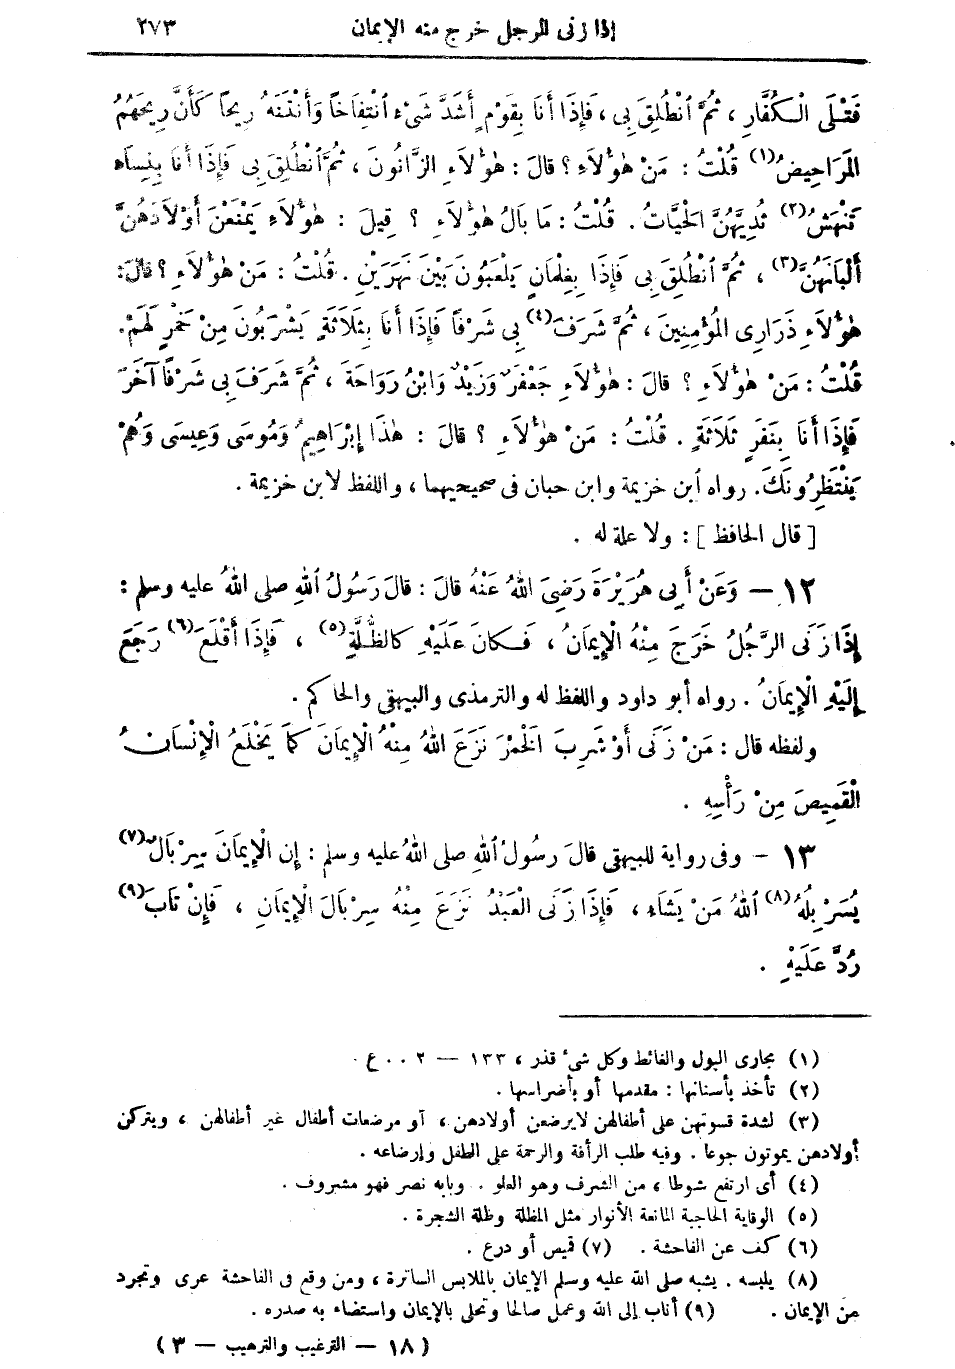 إذا زنى الرجل خرج منه الإيمان ٢٧٣
قَتْلَى الْكُفَّارِ ، ثُمَّ ٱنْطُلِقَ بِى ، فَإِذَا أَنَا بِقَوْمٍ أَشَدَّ شَىْءٍ ٱنْتِفَاخًا وَأَنْتَنَهُ رِيحًا كَأَنَّ رِيحَهُمُ
المَرَاحِيضُ(١) قُلْتُ : مَنْ هٰؤُلَاءِ ؟ قَالَ : هٰؤُلَاءِ الزَّانُونَ ، ثُمَّ ٱنْطُلِقَ بِى فَإِذَا أَنَا بِنِسَاءٍ
تَنْهَشُ(٢) ثُدِيَّهُنَّ الْحَيَّاتُ . قُلْتُ : مَا بَالُ هٰؤُلَاءِ ؟ قِيلَ : هٰؤُلَاءِ يَمْنَعْنَ أَوْلَادَهُنَّ
أَلْبَانَهُنَّ(٣) ، ثُمَّ ٱنْطُلِقَ بِى فَإِذَا بِغِلْمَانٍ يَلْعَبُونَ بَيْنَ نَهَرَيْنِ . قُلْتُ : مَنْ هٰؤُلَاءِ ؟ قَالَ :
هٰؤُلَاءِ ذَرَارِى المُؤْمِنِينَ ، ثُمَّ شَرَفَ(٤) بِى شَرْفًا فَإِذَا أَنَا بِثَلَاثَةٍ يَشْرَبُونَ مِنْ خَمْرٍ لَهُمْ.
قُلْتُ : مَنْ هٰؤُلَاءِ ؟ قَالَ : هٰؤُلَاءِ جَعْفَرٌ وَزَيْدٌ وَابْنُ رَوَاحَةَ ، ثُمَّ شَرَفَ بِى شَرْفًا آخَرَ
فَإِذَا أَنَا بِنَفَرٍ ثَلَاثَةٍ . قُلْتُ : مَنْ هٰؤُلَاءِ ؟ قَالَ : هٰذَا إِبْرَاهِيمُ وَمُوسَى وَعِيسَى وَهُمْ
يَنْتَظِرُونَكَ. رواه ابن خزيمة وابن حبان فى صحيحيهما ، واللفظ لابن خزيمة .
[ قال الحافظ ] : ولا علة له .
١٢ — وَعَنْ أَبِى هُرَيْرَةَ رَضِىَ اللهُ عَنْهُ قَالَ : قَالَ رَسُولُ ٱللهِ صلى اللهُ عليه وسلم :
إِذَا زَنَى الرَّجُلُ خَرَجَ مِنْهُ الْإِيمَانُ ، فَكانَ عَلَيْهِ كَالظُّلَّةِ(٥) ، فَإِذَا أَقْلَعَ(٦) رَجَعَ
إِلَيْهِ الْإِيمَانُ . رواه أبو داود واللفظ له والترمذى والبيهقى والحاكم .
ولفظه قال : مَنْ زَنَى أَوْ شَرِبَ الخَمْرَ نَزَعَ اللهُ مِنْهُ الْإِيمَانَ كَمَا يَخْلَعُ الْإِنْسَانُ
الْقَمِيصَ مِنْ رَأْسِهِ .
١٣ — وفى رواية للبيهقى قَالَ رسُولُ ٱللهِ صلى اللهُ عليه وسلم : إن الْإِيمَانَ سِرْبَالٌ(٧)
يُسَرْبِلُهُ(٨) ٱللهُ مَنْ يَشَاءُ ، فَإِذَا زَنَى الْعَبْدُ نَزَعَ مِنْهُ سِرْبَالَ الْإِيمَانِ ، فَإِنْ تَابَ(٩)
رُدَّ عَلَيْهِ .
(١) مجارى البول والغائط وكل شىء قذر ، ١٣٣ — ٢ . . ع .
(٢) تأخذ بأسنانها : مقدمها أو بأضراسها .
(٣) لشدة قسوتهن على أطفالهن لايرضعن أولادهن ، أو مرضعات أطفال غير أطفالهن ، ويتركن
أولادهن يموتون جوعا . وفيه طلب الرأفة والرحمة على الطفل وإرضاعه .
(٤) أى ارتفع شوطا ، من الشرف وهو العلو . وبابه نصر فهو مشروف .
(٥) الوقاية الحاجبة المانعة الأنوار مثل المظلة وظلة الشجرة .
(٦) كف عن الفاحشة . (٧) قميص أو درع .
(٨) يلبسه . يشبه صلى الله عليه وسلم الإيمان بالملابس الساترة ، ومن وقع فى الفاحشة عرى وتجرد
من الإيمان . (٩) أناب إلى الله وعمل صالحا وتحلى بالإيمان واستضاء به صدره .
( ١٨ — الترغيب والترهيب — ٣ )